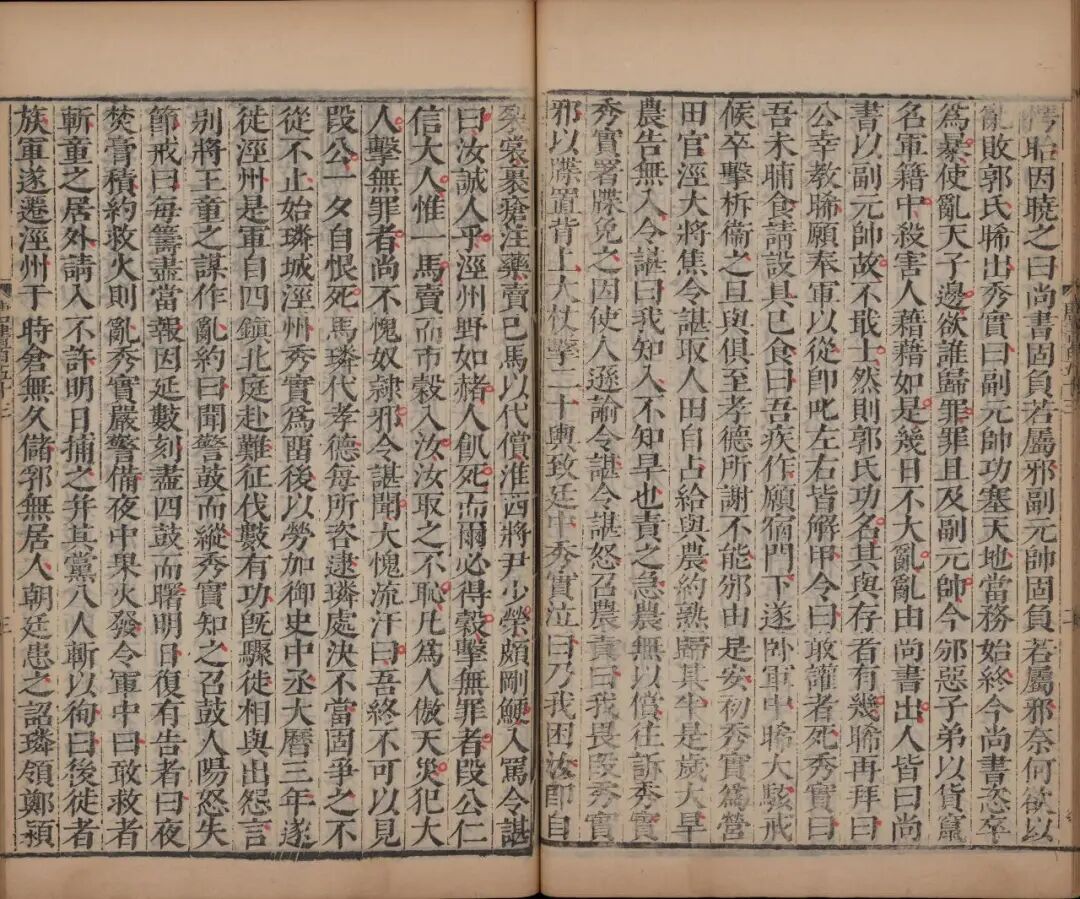 愕眙因曉之曰尚書固負若屬邪副元帥固負若屬邪奈何欲以
亂敗郭氏晞出秀實曰副元帥功塞天地當務始終今尚書恣卒
爲暴使亂天子邊欲誰歸罪罪且及副元帥今邠惡子弟以貨竄
名軍籍中殺害人藉藉如是幾日不大亂亂由尚書出人皆曰尚
書以副元帥故不戢士然則郭氏功名其與存者有幾晞再拜曰
公幸教晞願奉軍以從即叱左右皆解甲令曰敢讙者死秀實曰
吾未晡食請設具已食曰吾疾作願宿門下遂臥軍中晞大駭戒
候卒擊柝衞之旦與俱至孝德所謝不能邠由是安初秀實爲營
田官涇大將焦令諶取人田自占給與農約熟歸其半是歲大旱
農告無入令諶曰我知入不知旱也責之急農無以償往訴秀實
秀實署牒免之因使人遜諭令諶令諶怒召農責曰我畏段秀實
邪以牒置背上大杖擊二十輿致廷中秀實泣曰乃我困汝即自
裂裳裹瘡注藥賣已馬以代償淮西將尹少榮頗剛鯁入罵令諶
曰汝誠人乎涇州野如赭人飢死而爾必得穀擊無罪者段公仁
信大人惟一馬賣而市穀入汝汝取之不恥凡爲人傲天災犯大
人擊無罪者尚不愧奴隸邪令諶聞大愧流汗曰吾終不可以見
段公一夕自恨死馬璘代孝德每所咨逮璘處決不當固爭之不
從不止始璘城涇州秀實爲留後以勞加御史中丞大曆三年遂
徙涇州是軍自四鎮北庭赴難征伐數有功既驟徙相與出怨言
別將王童之謀作亂約曰聞警鼓而縱秀實知之召鼓人陽怒失
節戒曰每籌盡當報因延數刻盡四鼓而曙明日復有告者曰夜
焚膏積約救火則亂秀實嚴警備夜中果火發令軍中曰敢救者
斬童之居外請入不許明日捕之并其黨八人斬以徇曰後徙者
族軍遂遷涇州于時倉無久儲郛無居人朝廷患之詔璘領鄭潁